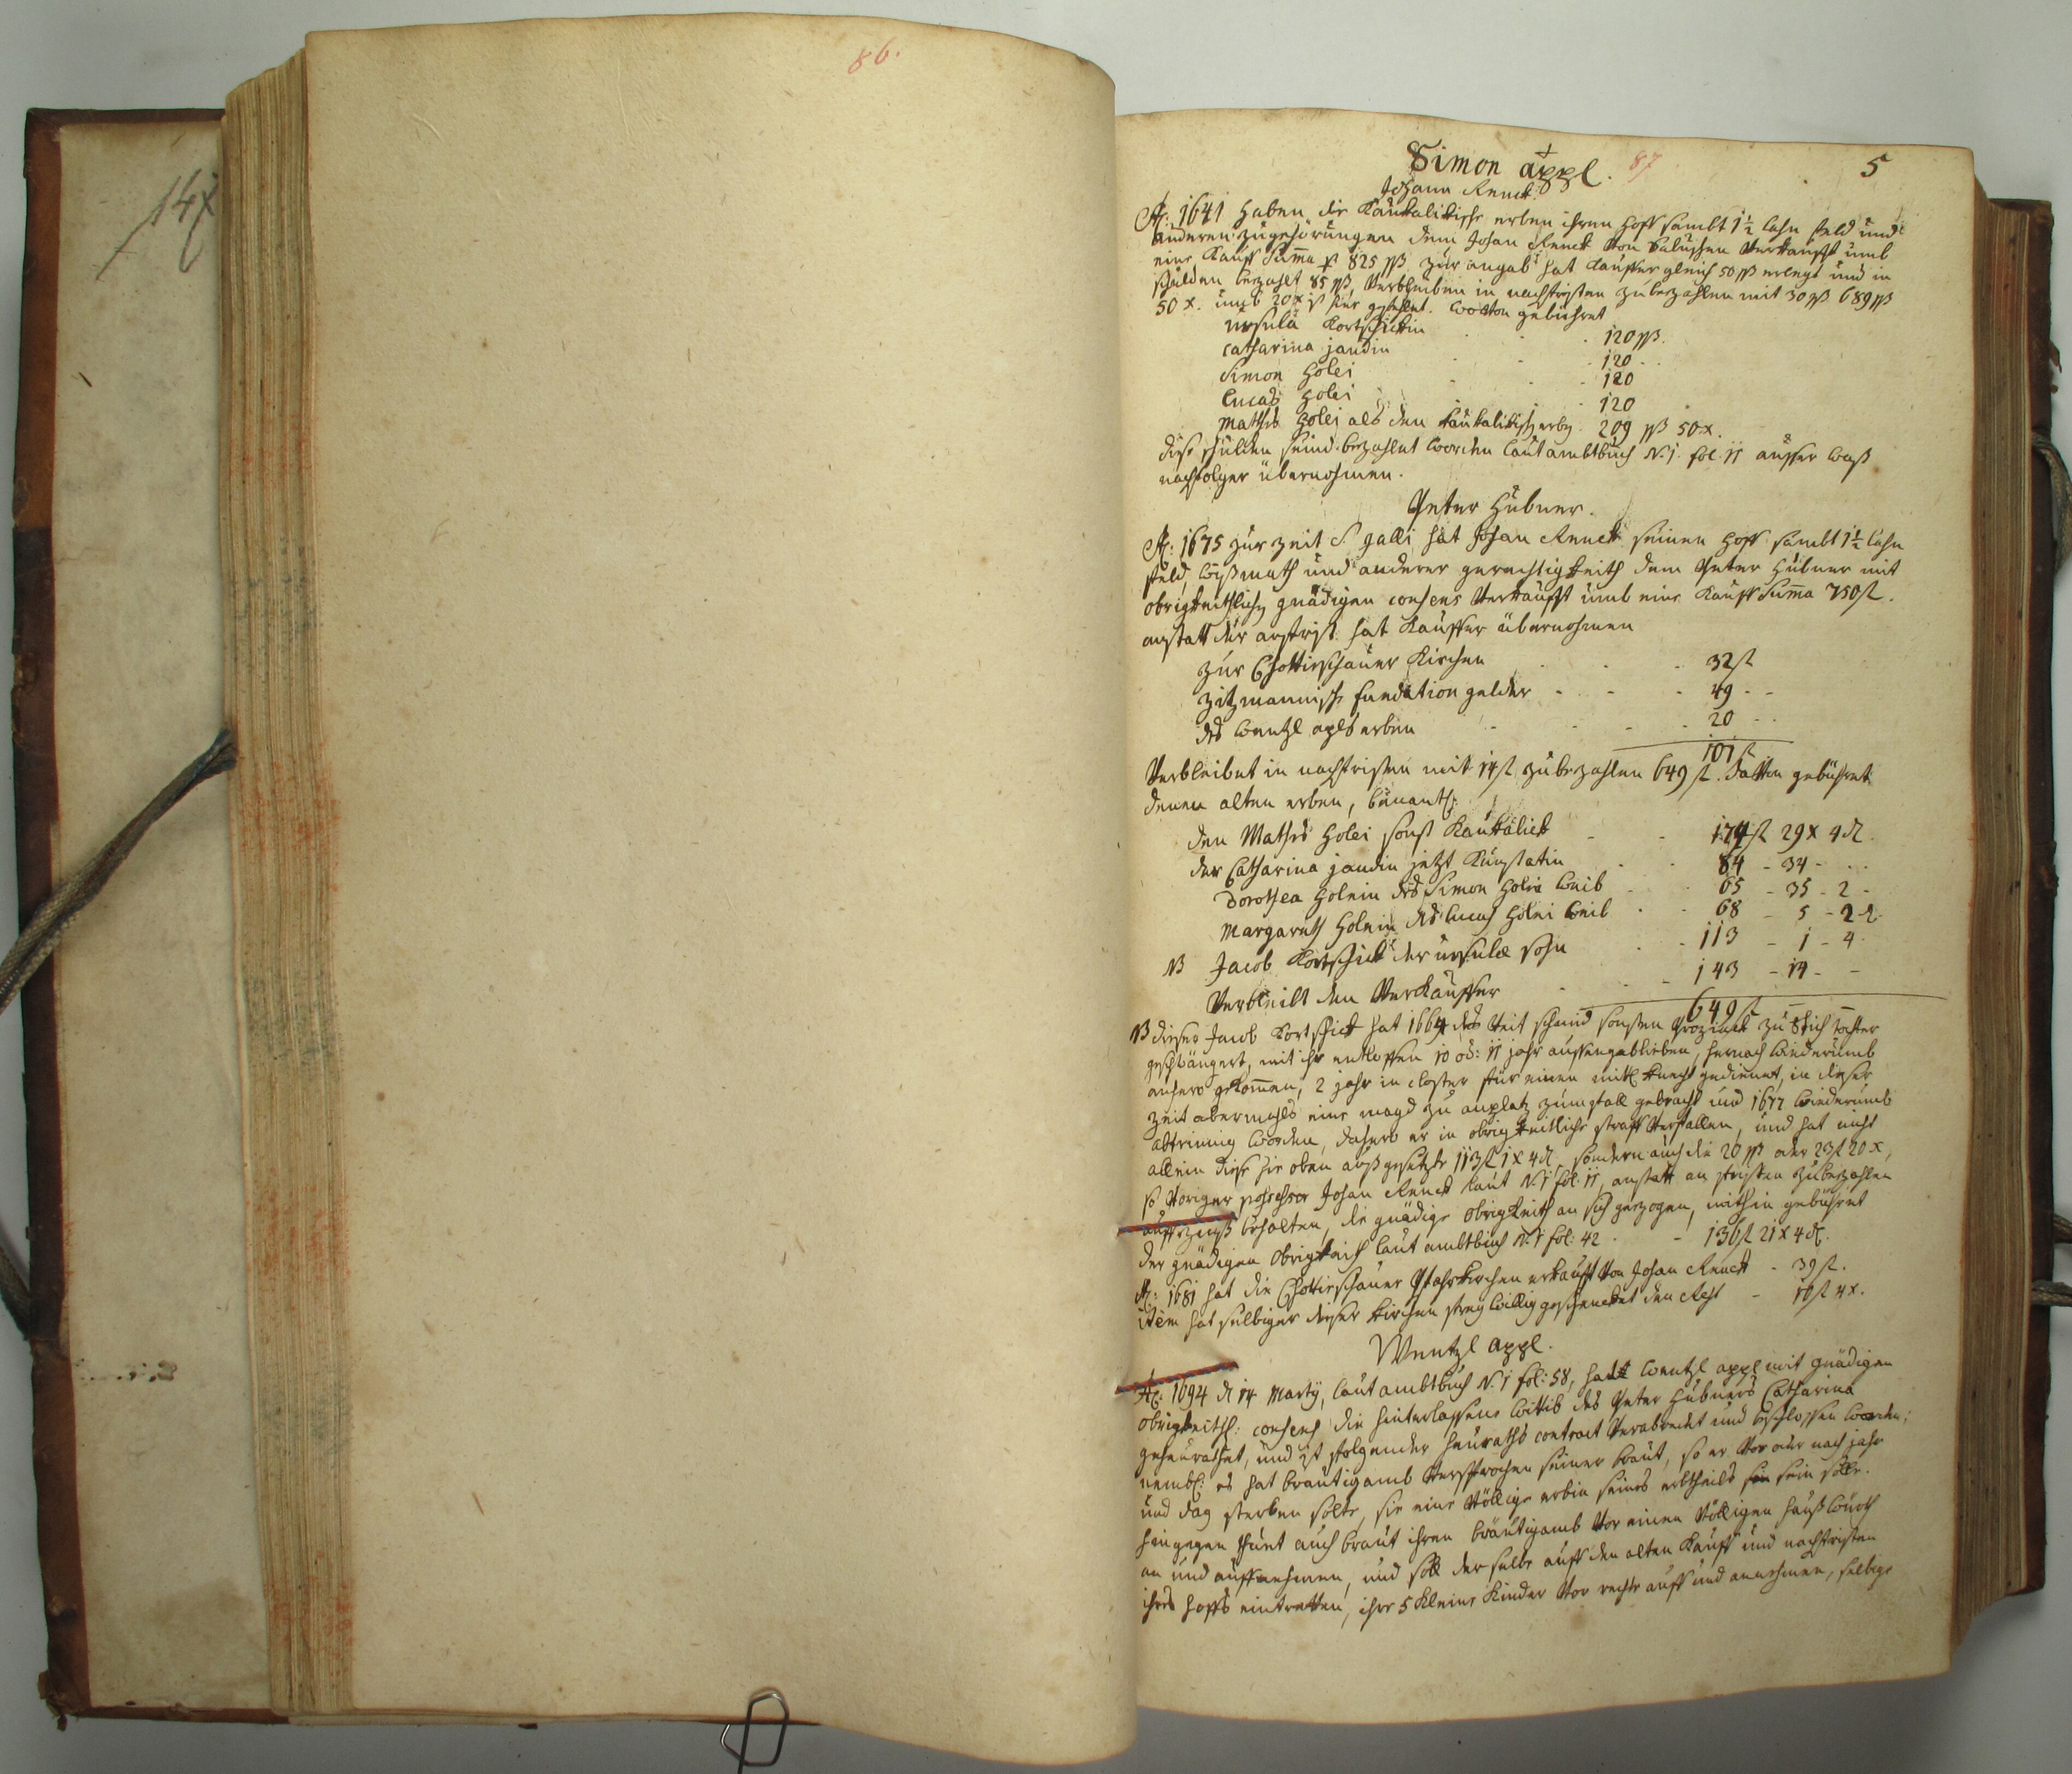 147
86.
Simon appl. 87 5
Johann Renck.
Aō: 1641 haben die Kaukalikische erben ihren hoff sambt 1½ lahn feld und
anderen zugehörungen dem Johan Renck von verkaufft umb
eine Kauff Suma p 825 ßß zur angab hat Kauffer gleich 50 ßß erlegt und in
schulden bezahlt 85 ßß, Verbleiben in nachfristen zu bezahlen mit 30 ßß 689 ßß
50 x. umb 20 x ist hier gefehlet. wovon gebühret
ursula Kortschickin - - - 120 ßß.
Catharina jandin - - - 120 - -
Simon Holei - - - 120
Lucas Holei - - - 120
Mathes Holei als den Kaukalikischen erben 209 ßß 50 x.
diese schulden seind bezahlet worden laut ambtbuch N. 1. fol. 11 ausser waß
nachfolger übernohmen.
Peter Hübner.
Aō: 1675 zur zeit S. galli hat Johan Renck seinen hoff sambt 1½ lahn
feld, wißmath und anderer gerechtigkeith dem Peter Hübner mit
obrigkeitlichen gnädigen consens verkaufft umb eine Kauff Suma 750 fl.
anstatt der hat Kauffer übernohmen
zur Chotieschauer Kirchen - - - 32 fl
zitzmannische fundation gelder - - - 49 - -
des Wentzl apls erben - - - 20 - -
101 fl
Verbleibet in nachfristen mit 14 fl zu bezahlen 649 fl. Davon gebühret
denen alten erben, benantl:
den Mathes Holei sonst Kaukalick - - 174 fl 29 x 4 d
der Catharina jandin jetzt Kunstatin - - 84 - 34 - . .
Dorothea Holein des Simon Holei Weib - - 65 - 35 - 2 -
Margareth Holein des Lucas Holei Weib - - 68 - 5 - 2 d.
NB Jacob Kortschick der ursulæ sohn - - 113 - 1 - 4 -
Verbleibt den Verkauffer - - - 143 - 14 - -
649 fl - -
NB dieser Jacob Kortschick hat 1664 des Veit schmid sonsten zu tochter
geschwängert, mit ihr entloffen 10 od: 11 jahr aussengeblieben, hernach wiederumb
anhero gekomen, 2 jahr in closter für einen knecht gedienet, in dieser
zeit abermahls eine magd zu anplatz zumfall gebracht und 1677 wiederumb
abtrinnig worden, dahero er in obrigkeitliche straff verfallen, und hat nicht
allein diese hie oben außgesetzte 113 fl 1 x 4 d, sondern auch die 20 ßß oder 23 fl 20 x,
so voriger possessor Johan Renck laut N. 1 fol. 11, anstatt an fristen zu bezahlen
behalten, die gnädige obrigkeith an sich gezogen, mithin gebühret
der gnädigen obrigkeith laut ambtbuch N. 1 fol: 42 - - 136 fl 21 x 4 d.
Aō: 1681 hat die Chotieschauer Pfahrkirchen erkaufft von Johan Renck - 39 fl.
item hat selbiger dieser Kirchen freywillig geschencket den Rest - 10 fl 4 x.
Wentzl appl.
Aō: 1694 d 14 Martÿ, laut ambtbuch N. 1 fol: 58, hat Wentzl appl mit gnädigen
obrigkeitl: consens die hinterlassene wittib des Peter Hübners Catharina
geheurathet, und ist folgender heuraths contract verabredet und beschlossen worden;
nembl: es hat bräutigamb versprochen seiner braut, so er vor oder nach jahr
und dag sterben solte, sie eine völlige erbin seines erbtheils sein solle.
hingegen thuet auch braut ihren bräutigamb vor einen völligen haußwürth
an und auffnehmen, und soll der selbe auff den alten Kauff und nachfristen
ihres hoffs eintretten, ihre 5 kleine Kinder vor rechte auff und annehmen, selbige